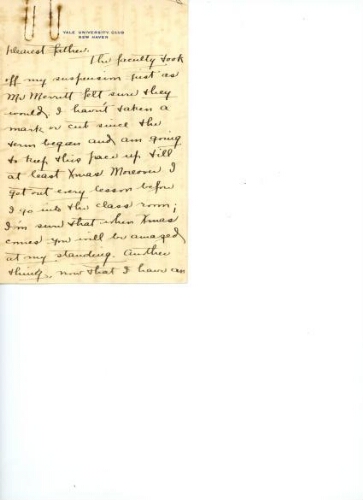 YALE UNIVERSITY CLUB
NEW HAVEN
Dearest Father.
The faculty took
off my suspension just as
Mr Merritt felt sure they
would. I haven't taken a
mark or cut since the
term began and am going
to keep this pace up till
at least Xmas Moreover I
get out every lesson before
I go into the class room;
I'm sure that when Xmas
comes you will be amazed
at my standing. Another
thing, now that I have an